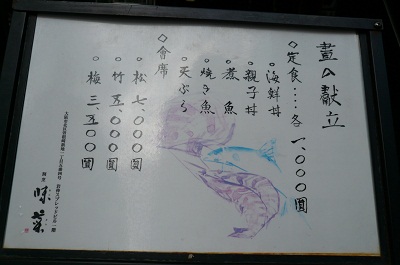 晝の献立
◇定食‥‥各一、〇〇〇圓
・海鮮丼
・親子丼
・煮魚
・焼き魚
・天ぷら
◇會席
・松 七、〇〇〇圓
・竹 五、〇〇〇圓
・梅 三、五〇〇圓
味菜